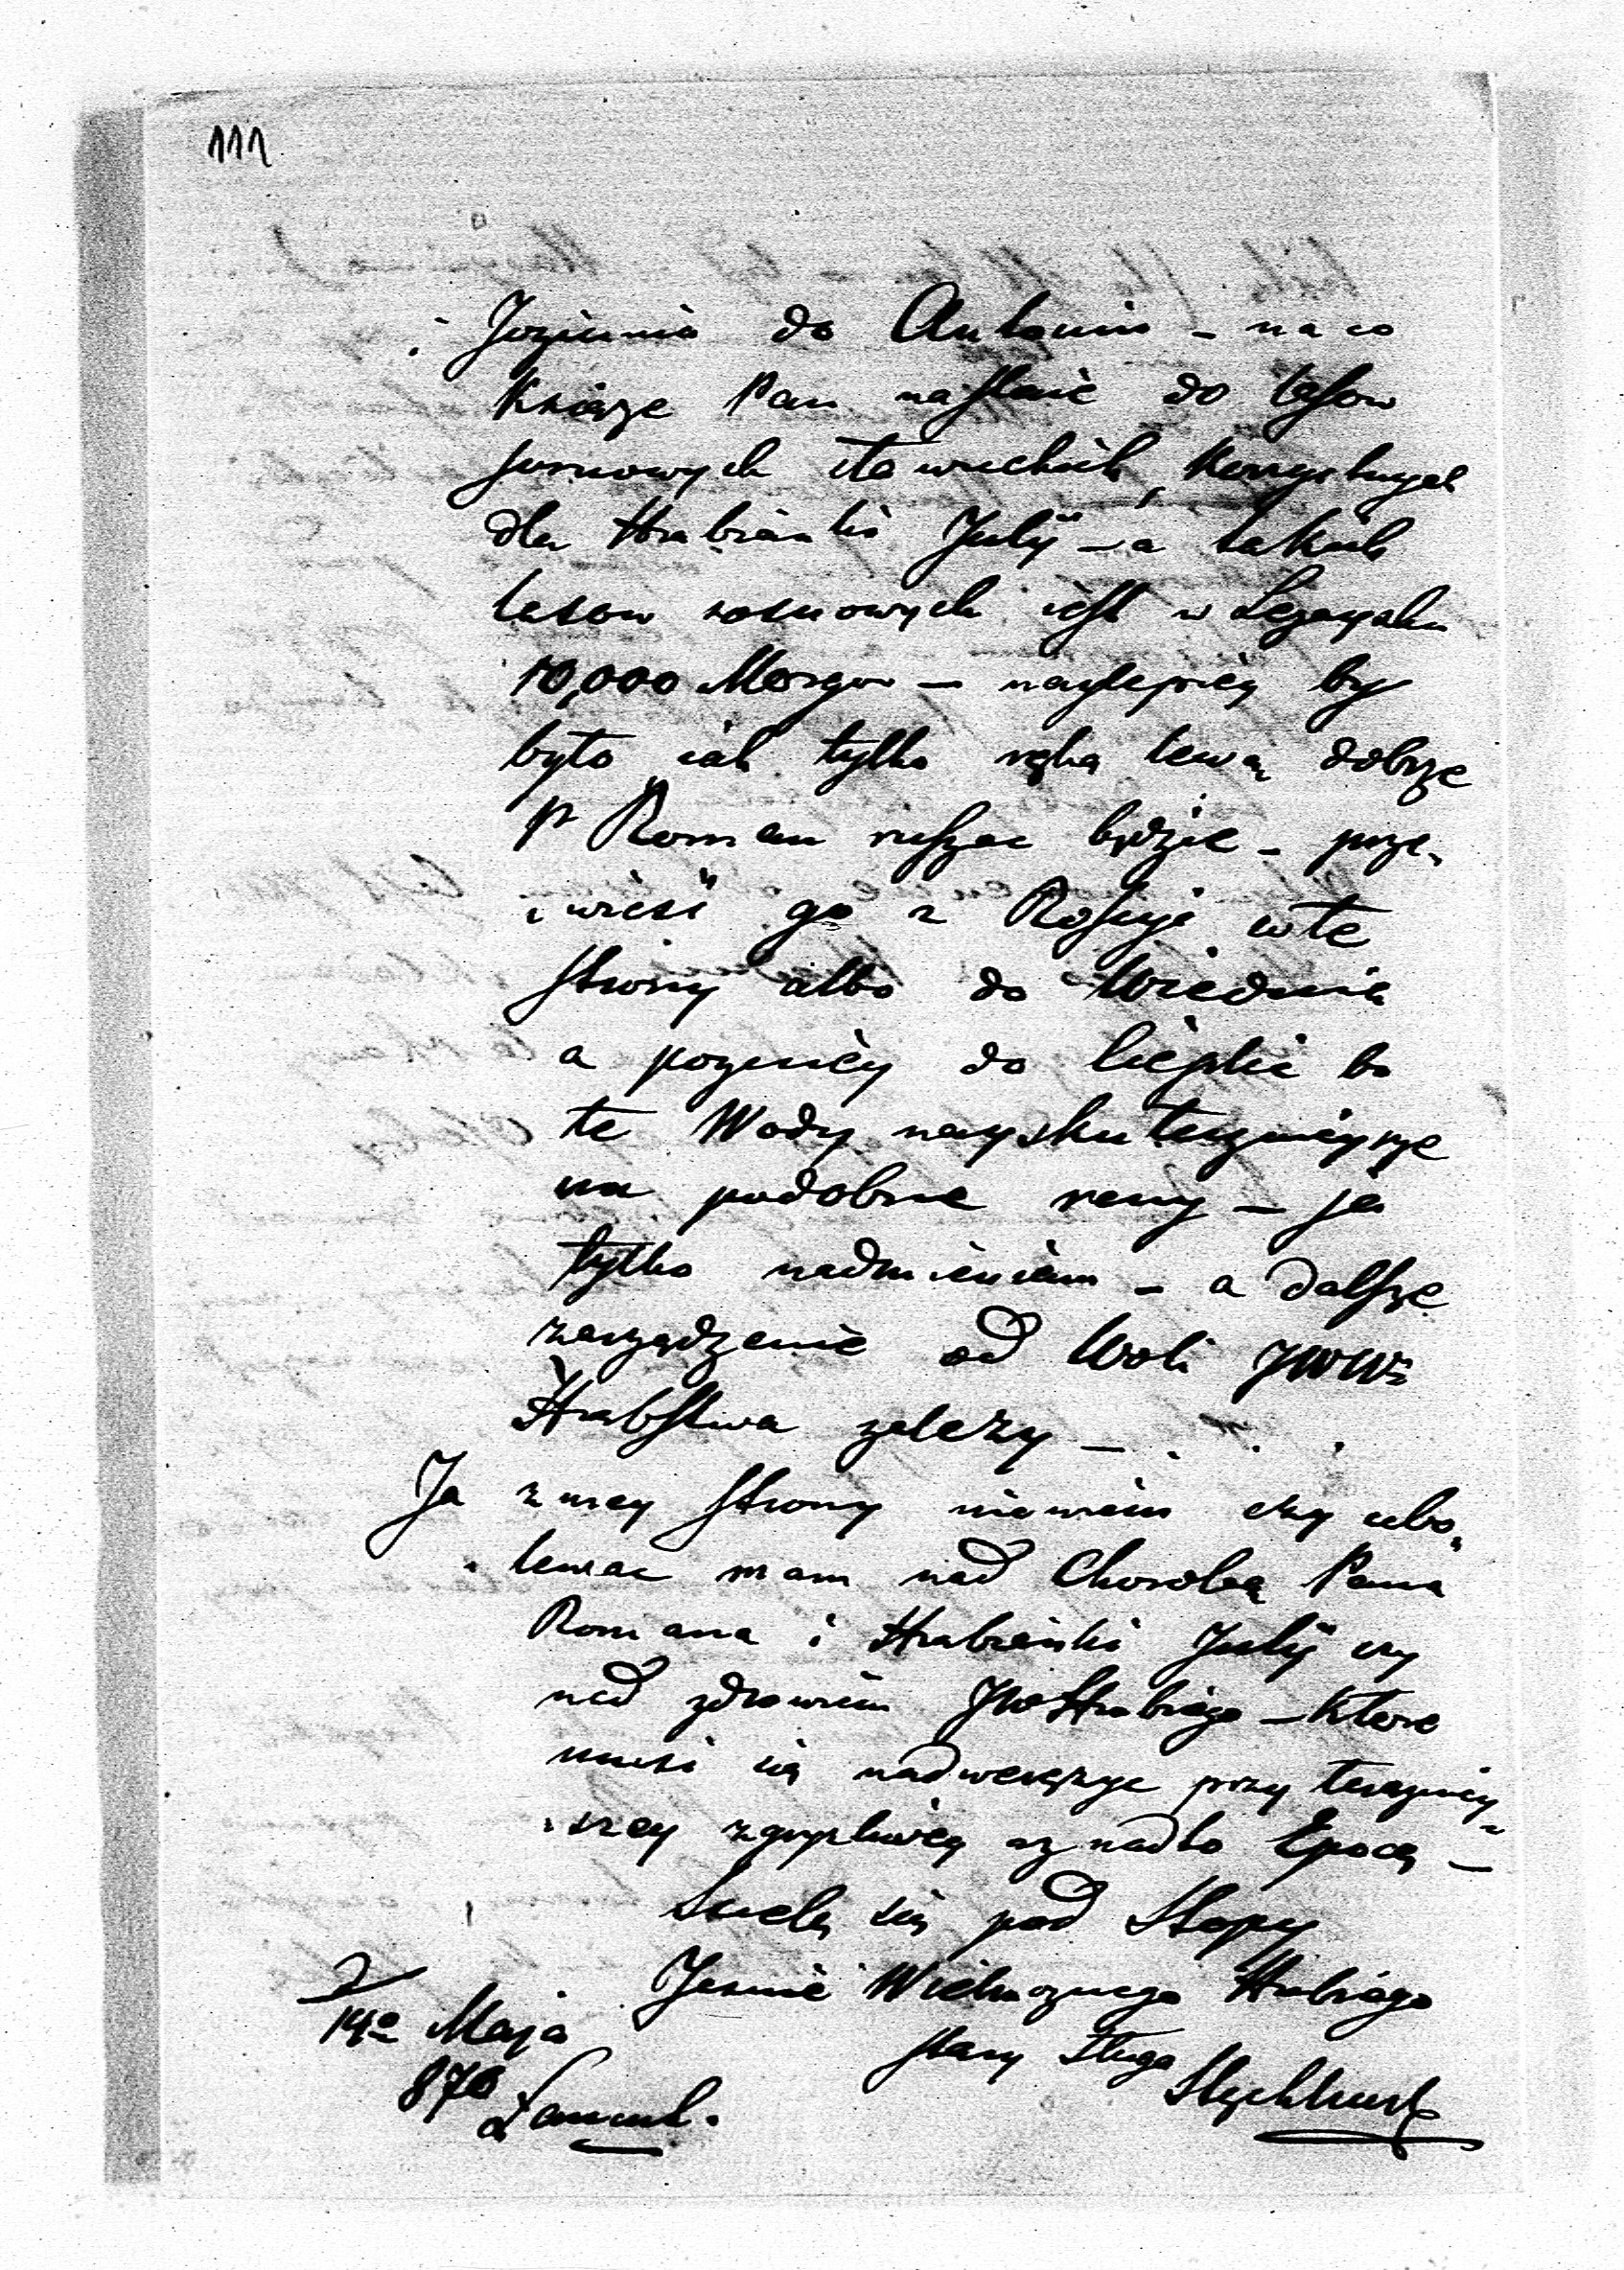 111
Jeziernia do Antonin – na co
Książe Pan naſtaie do laſow
ſosnowych
dla Hrabianki Julÿ – a takich
lasow sosnowych ieſt w Leżaysku
10,000 Morgow – naylepiey by
było iak tylko ręką lewą dobrze
P Roman ruſzac będzie – prze,
,wieść go z Roſsyi w te
ſtrony albo do Wiednia
a pozniéy do Cieplic bo
te Wody nayskutecznieysze
na podobne rany – ja
tylko nadmieniam – a dalſze
zarządzenie od Woli JWW
Hrabſtwa zależy – . . .
Ja z mey ſtrony niewiem czy ubo,
,lewac mam nad Chorobą Pana
Romana i Hrabianki Julÿ czy
nad zdrowiem JWHrabiego – ktore
musi się nadwerężyc przy terazniey
,szey zgryzliwey aż nadto Epocę –
Scielę się pod Stopy
Jasnie Wielmożnego Hrabiego
ſtary Sługa
14º Maja
870
Łancut.